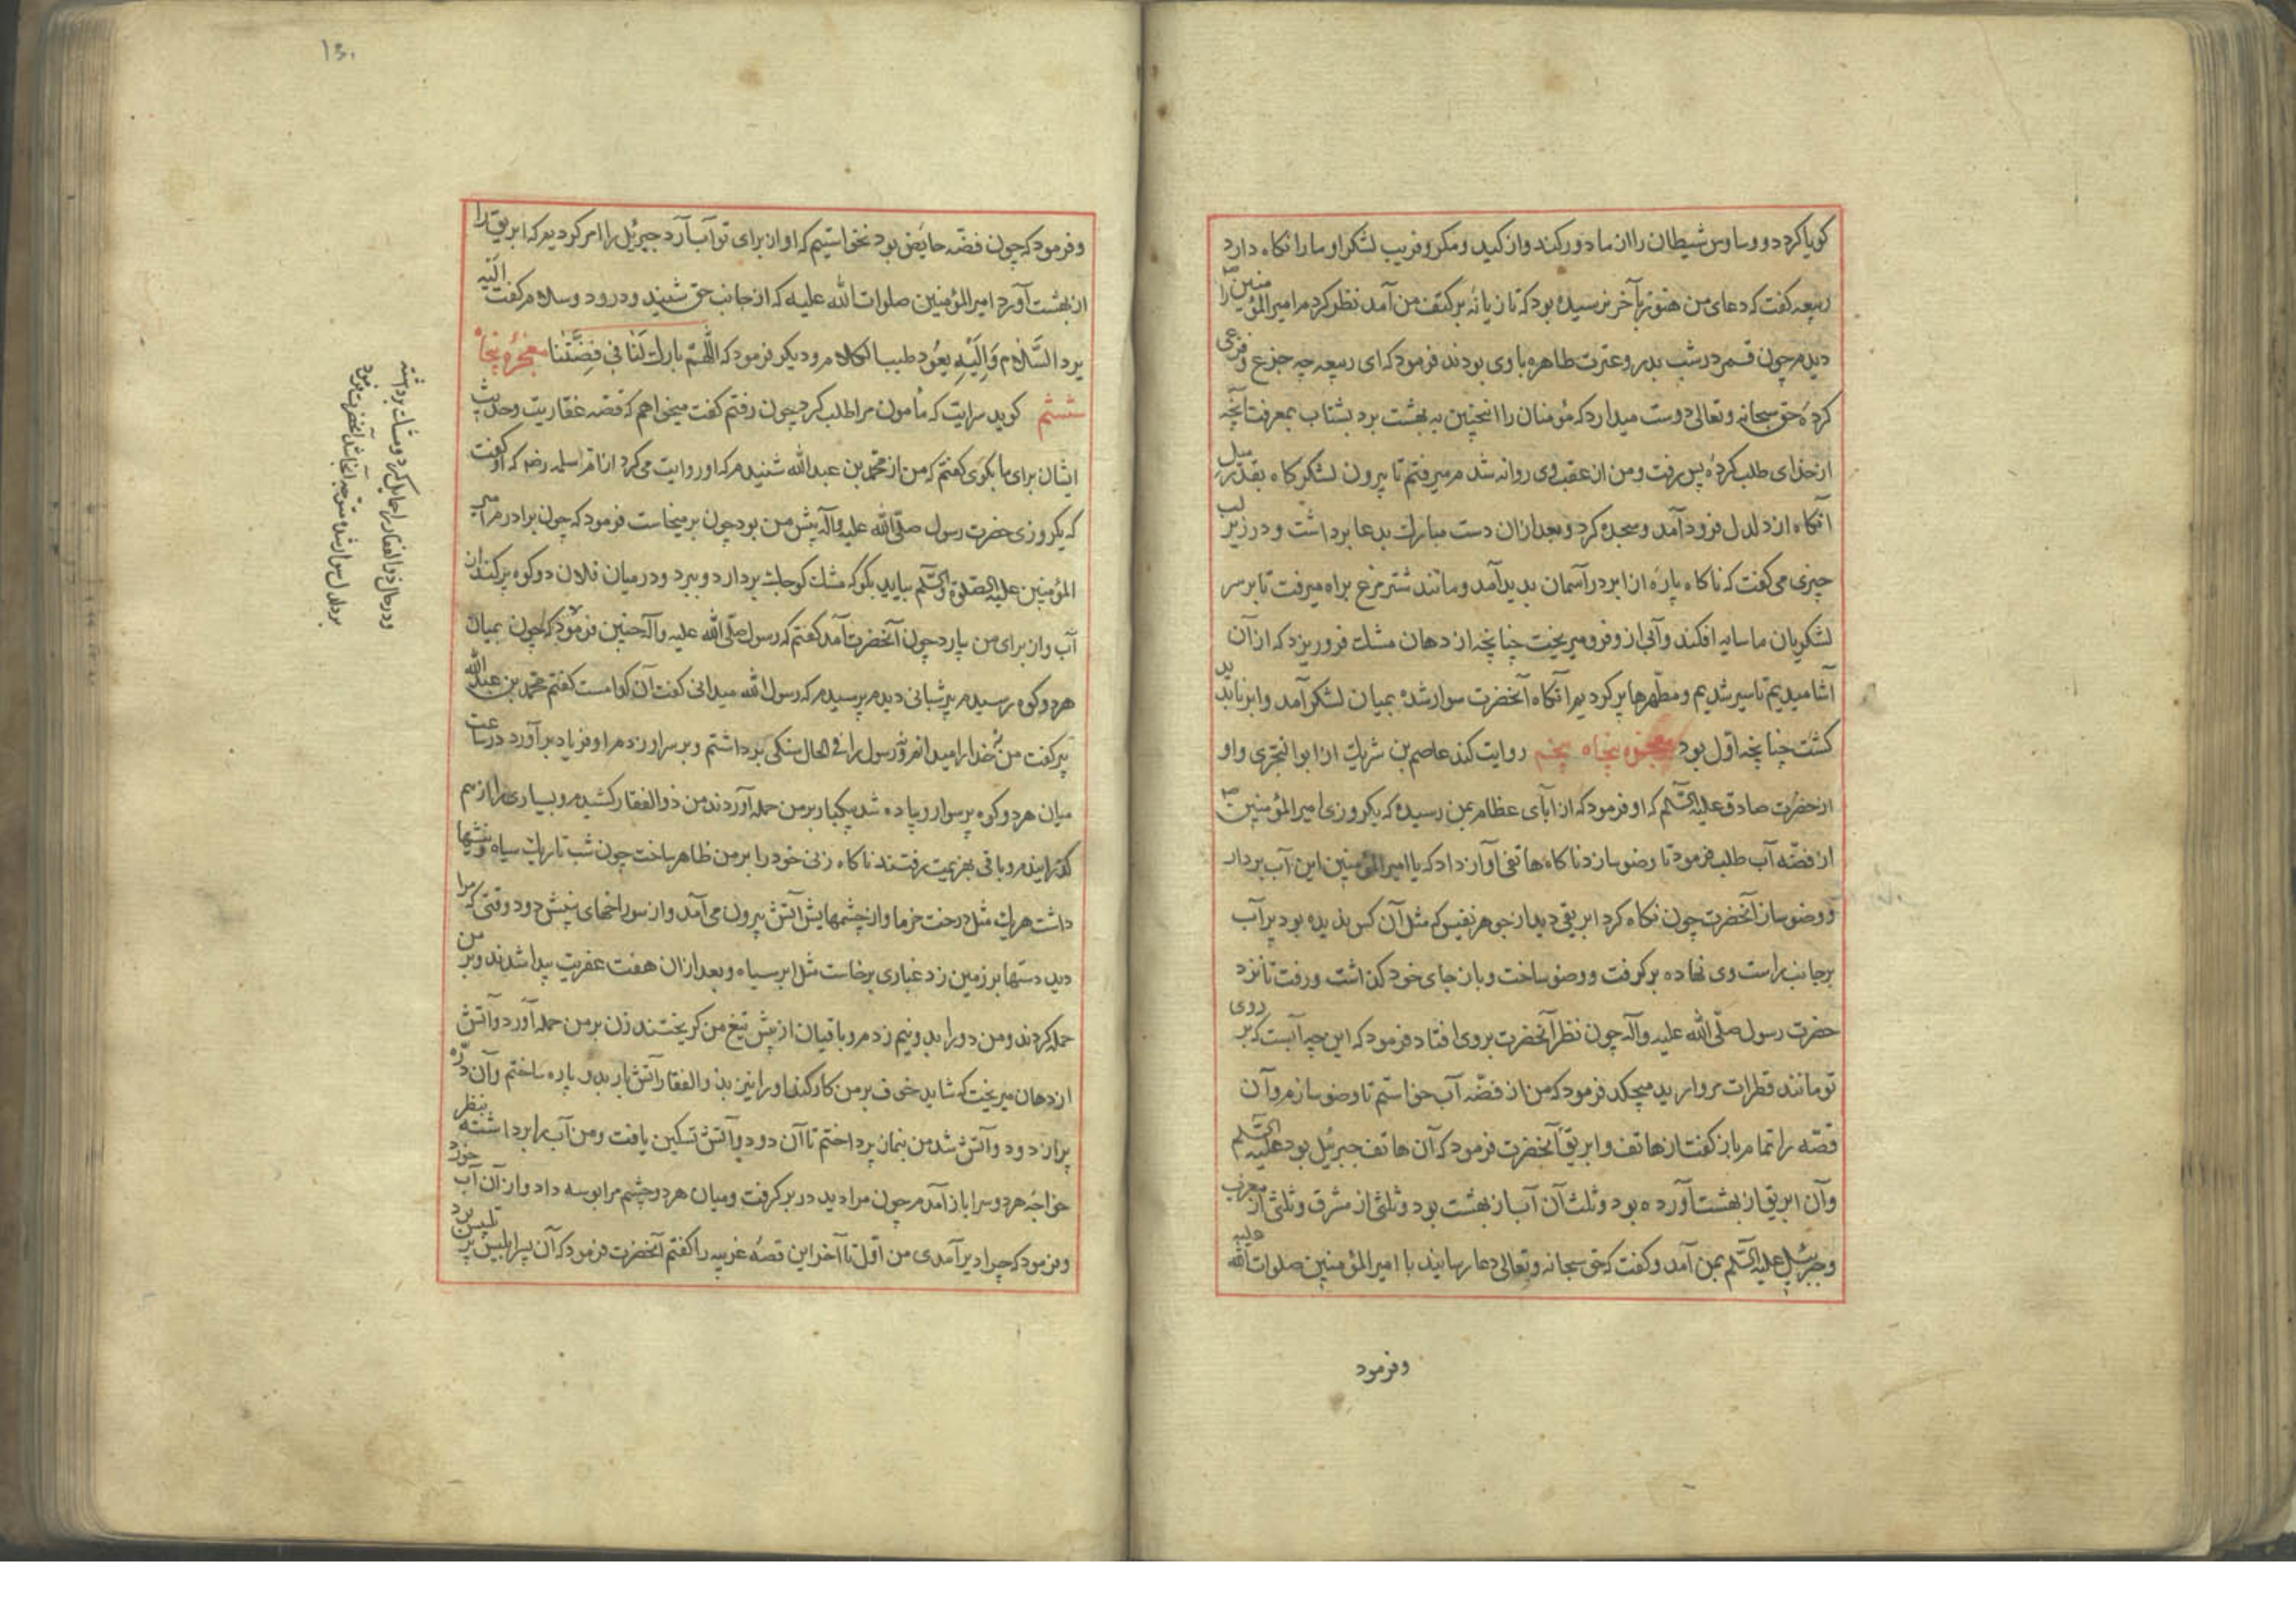 کویا کرد و وساوس شیطان را از ما دور کند و از کید و مکر و فریب لشکر او ما را نکاه دارد
ربیعه کفت که دعای من هنوز بآخر نرسیده بود که تازیانه بر کتف من آمد نظر کردم امیر المؤمنین را
دیدم چون قمر در شب بدر و عترت طاهره با وی بودند فرمود که ای ربیعه چه جزع و فزعی
کردهٔ حق سبحانه و تعالی دوست میدارد که مؤمنان را اینچنین به بهشت برد بشتاب بمعرفت آنچه
از خدای طلب کردهٔ پس رفت و من از عقب وی روانه شدم میرفتم تا بیرون لشکرکاه بقدر میل
آنکاه از دلدل فرود آمد و سجده کرد و بعد ازان دست مبارک بدعا برداشت و در زیر لب
چیزی می کفت که ناکاه پارهٔ از ابر در آسمان پدید آمد و مانند شترمرغ براه میرفت تا بر سر
لشکریان ما سایه افکند و آبی ازو فرو میریخت چنانچه از دهان مشک فرو ریزد که ازان
آشامیدیم تا سیر شدیم و مطهرها پر کردیم آنکاه آنحضرت سوار شده بمیان لشکر آمد و ابر ناپدید
کشت چنانچه اول بود معجزه پنجاه پنجم روایت کند عاصم بن شریک از ابو البختری و او
از حضرت صادق علیه السلم که او فرمود که از آبای عظام بمن رسیده که یکروزی امیر المؤمنین
از فضّه آب طلب فرمود تا وضو سازد ناکاه هاتفی آواز داد که یا امیر المؤمنین این آب بردار
و وضو ساز آنحضرت چون نکاه کرد ابریقی دید از جوهر نفیس که مثل آن کس ندیده بود پر آب
بر جانب راست وی نهاده برکرفت و وضو ساخت و باز جای خود کذاشت و رفت تا نزد
حضرت رسول صلّی الله علیه و آله چون نظر آنحضرت بر وی افتاد فرمود که این چه آبست که بر روی
تو مانند قطرات مروارید میچکد فرمود که من از فضّه آب خواستم تا وضو سازم و آن
قصّه را تمام باز کفت از هاتف و ابریق آنحضرت فرمود که آن هاتف جبرئیل بود علیه السلم
و آن ابریق از بهشت آورده بود و ثلث آن آب از بهشت بود و ثلثی از مشرق و ثلثی از مغرب
و جبرئیل علیه السلم بمن آمد و کفت که حق سبحانه و تعالی دعا رسانید با امیر المؤمنین صلوات الله علیه
وفرمود
۱۵۰
و فرمود که چون فضّه حایض بود نخواستیم که او از برای تو آب آرد جبرئیل را امر کردیم که ابریق را
از بهشت آورد امیر المؤمنین صلوات الله علیه که از جانب حق شنید و درود و سلام کفت الیه
یرد السَّلام وَ اِلَیْهِ یَعُود طیب الکلام و دیکر فرمود که اللّهمّ بارک لَنا فی فِضّتنا معجزهٔ پنجاه
ششم کوید روایت که مأمون مرا طلب کرد چون رفتم کفت میخواهم که قصّه عفاریت و حدیث
ایشان برای ما بکوی کفتم که من از محمّد بن عبد الله شنیدم که او روایت می کرد از امّ سلمه رضه که او کفت
که یکروزی حضرت رسول صلّی الله علیه و آله پیش من بود چون برمیخاست فرمود که چون برادرم امیر
المؤمنین علیه الصلوة و السّلم بیاید بکو که مشک کوچک بردارد و ببرد و در میان فلان دو کوه پر کند از
آب و از برای من بیارد چون آنحضرت آمد کفتم که رسول صلّی الله علیه و آله چنین فرمود که چون بمیان
هر دو کوه رسیدم پیر شبانی دیدم پرسیدم که رسول الله میدانی کفت آن کدامست کفتم محمّد بن عبد الله
پیر کفت من نه خدا را میدانم و نه رسول را فی الحال سنکی برداشتم و بر سر او زدم او فریاد برآورد در ساعت
میان هر دو کوه پر سوار و پیاده شد یکبار بر من حمله آوردند من ذو الفقار کشیدم و بسیاری را از هم
کذرانیدم و باقی بهزیمت رفتند ناکاه زنی خود را بر من ظاهر ساخت چون شب تاریک سیاه و نیشها
داشت هریک مثل درخت خرما و از چشمهایش آتش بیرون می آمد و از سوراخهای بینیش دود وقتی که مرا
دید دستها بر زمین زد غباری برخاست مثل ابر سیاه و بعد ازان هفت عفریت پیدا شدند و بر من
حمله کردند و من دو را بدو نیم زدم و باقیان از پیش تیغ من کریختند زن بر من حمله آورد و آتش
از دهان میریخت که شاید خوف بر من کار کند او را نیز بذو الفقار آتش بار بدو پاره ساختم و آن درّه
پر از دود و آتش شد من بنماز پرداختم تا آن دود و آتش تسکین یافت و من آب را برداشته بنظر
خواجه هر دو سرا باز آمدم چون مرا دید در بر کرفت و میان هر دو چشم مرا بوسه داد و ازان آب خورد
و فرمود که چرا دیر آمدی من اوّل تا آخر این قصّهٔ غریبه را کفتم آنحضرت فرمود که آن پیر ابلیس پر تلبیس
ودرحال ذو الفقار حمایل کرد و مشک برداشته
بر دلدل سوار شده متوجه آنجا شد آنحضرت فرمود